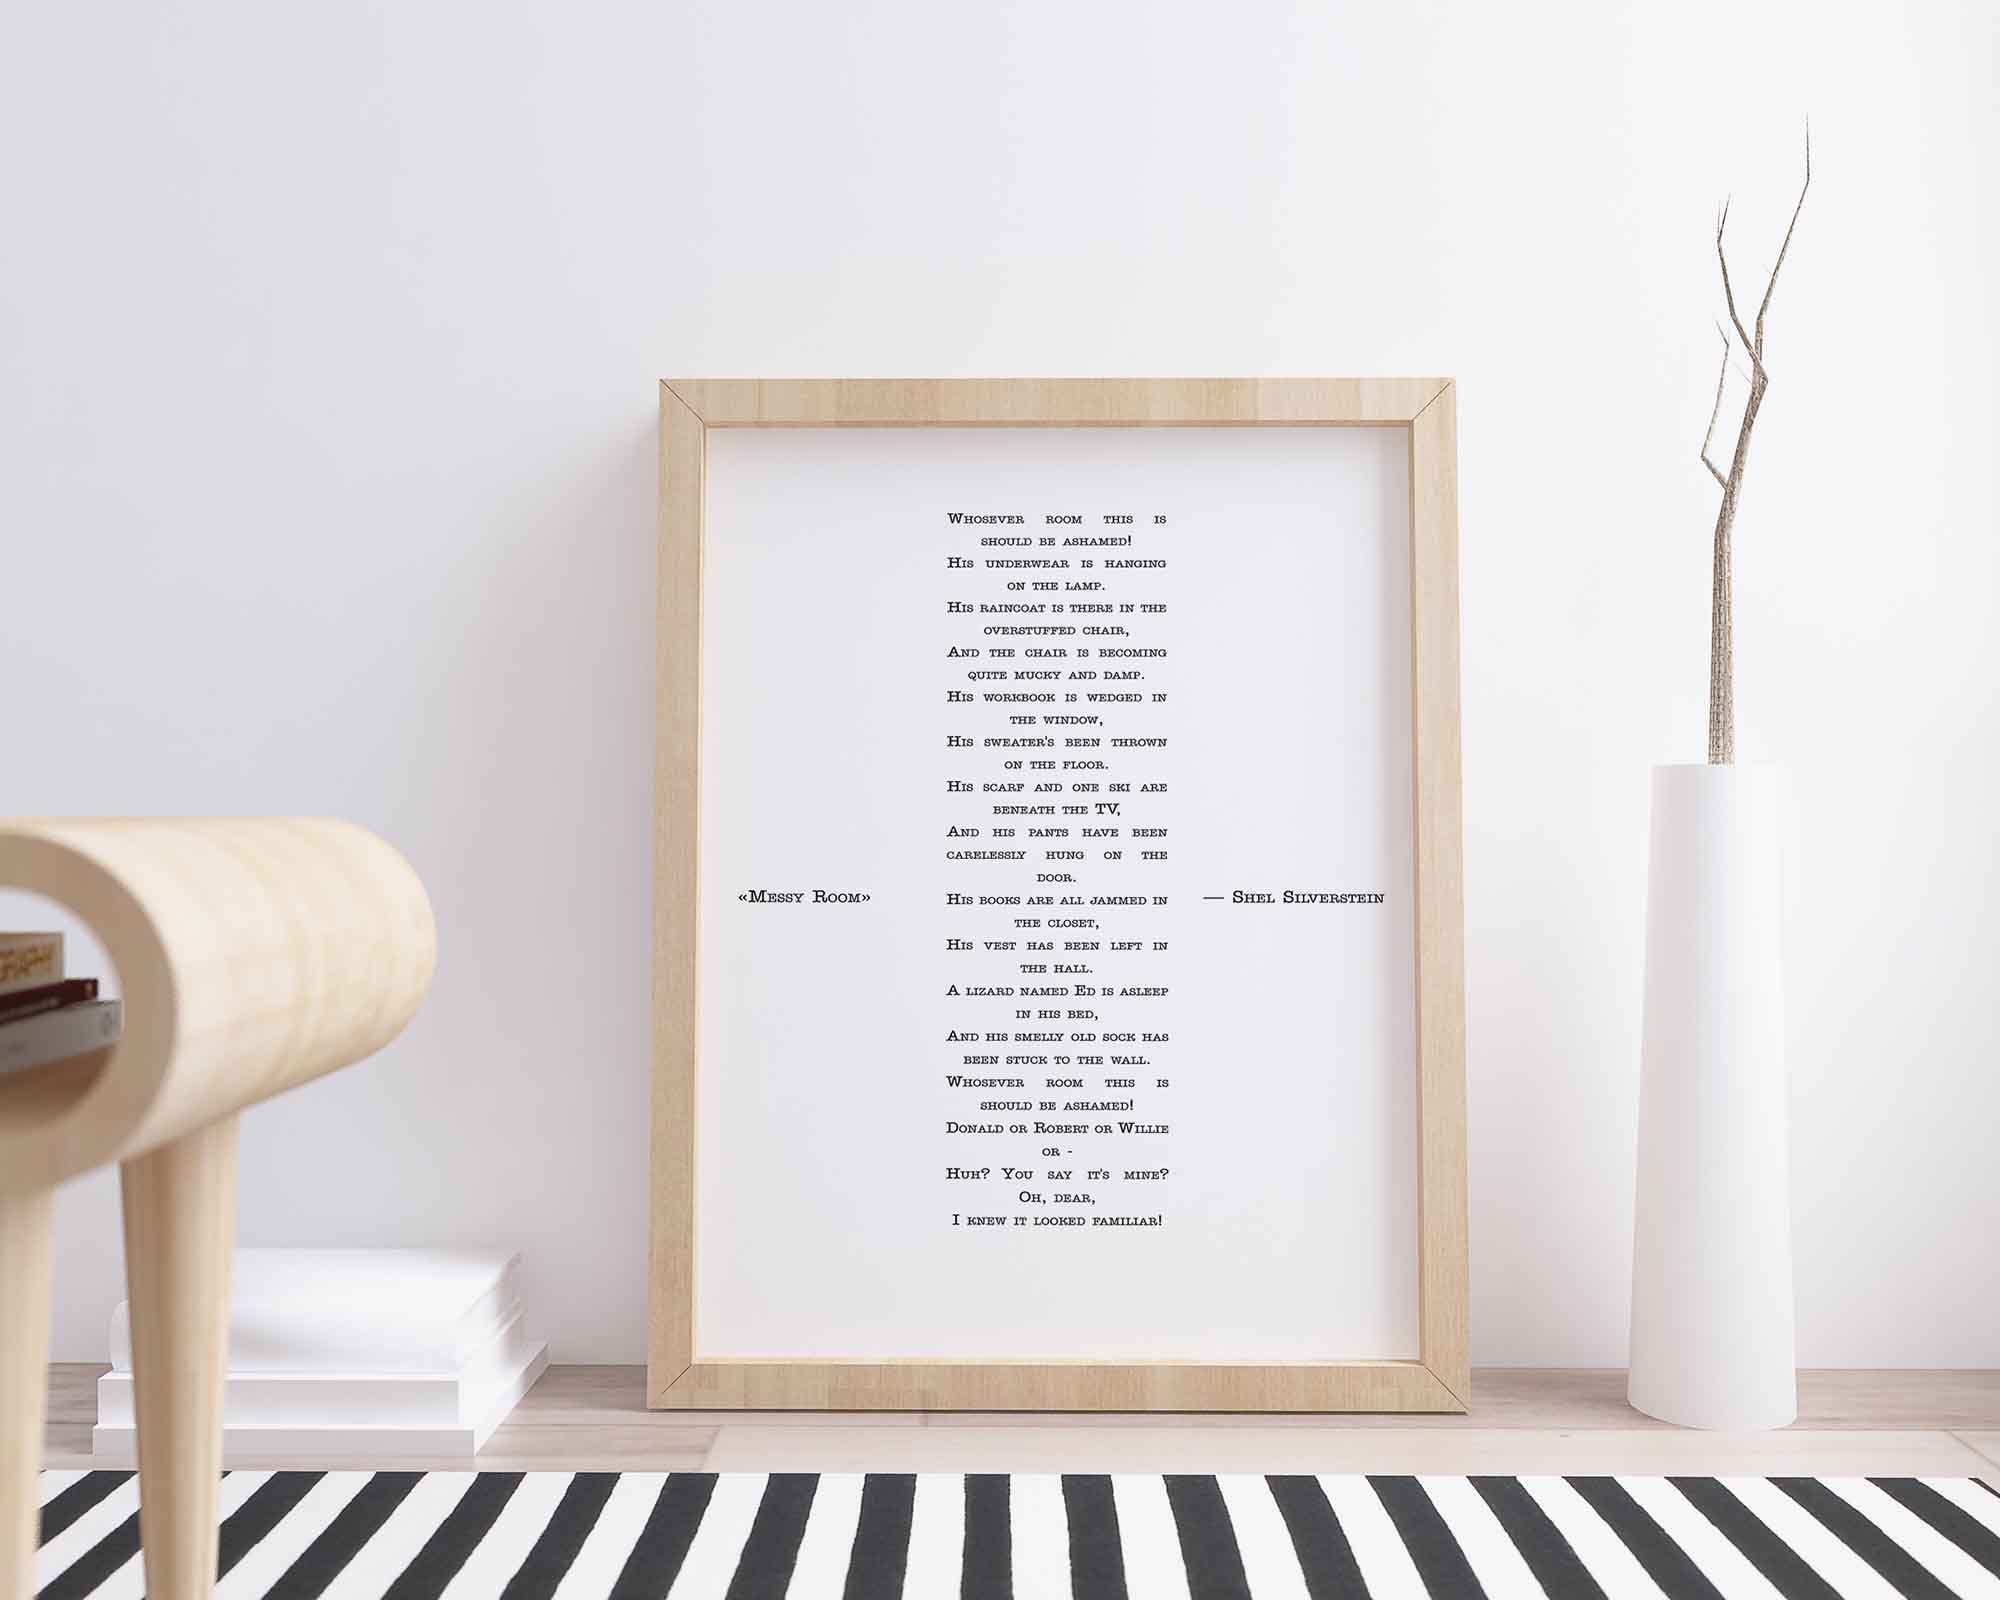 Whosever room this is
should be ashamed!
His underwear is hanging
on the lamp.
His raincoat is there in the
overstuffed chair,
And the chair is becoming
quite mucky and damp.
His workbook is wedged in
the window,
His sweater's been thrown
on the floor.
His scarf and one ski are
beneath the TV,
And his pants have been
carelessly hung on the
door.
«Messy Room»
His books are all jammed in
the closet,
His vest has been left in
the hall.
A lizard named Ed is asleep
in his bed,
And his smelly old sock has
been stuck to the wall.
Whosever room this is
should be ashamed!
Donald or Robert or Willie
or -
Huh? You say it's mine?
Oh, dear,
I knew it looked familiar!
— Shel Silverstein